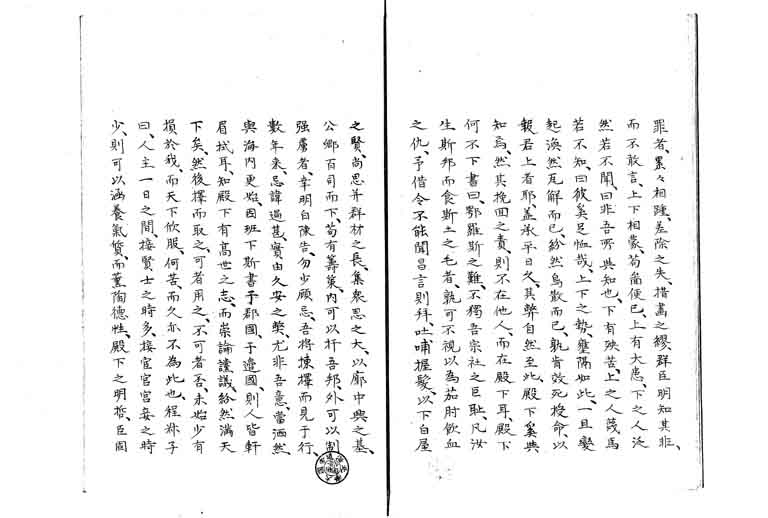 罪者、累々相踵、差除之失、措畫之繆、群臣明知其非、
而不敢言、上下相蒙、苟啚便已、上有大患、下之人泛
然若不聞、曰非吾所與知也、下有殃苦、上之人蔑焉
若不知、曰彼奚足恤哉、上下之勢、壅隔如此、一旦變
起、渙然瓦解而已、紛然鳥散而已、孰肯效死授命、以
報君上者耶、蓋承平日久、其獘自然至此、殿下奚與
知焉、然其挽回之責、則不在他人、而在殿下耳、殿下
何不下書曰、鄂羅斯之難、不獨吾宗社之巨恥、凡汝
生斯邦而食斯土之毛者、孰可不視以為茹肘飲血
之仇、予借令不能聞昌言則拜、吐哺握髮、以下白屋
之賢、尚思并群材之長、集衆思之大、以廓中興之基、
公鄉百司而下、苟有籌策、内可以杆吾邦、外可以割
强虜者、幸明白陳告、勿少顧忌、吾將揀擇而見于行、
數年来、忌諱過甚、實由久安之獘、尤非吾意、當洒然
與海内更始、因班下斯書于郡國、于邊國、則人皆軒
眉拭耳、知殿下有高世之志、而崇論謹議紛然滿天
下矣、然後擇而取之、可者用之、不可者否、未始少有
損於我、而天下欣服、何苦而久亦不為此也、程珎子
曰、人主一日之間、接賢士之時多、接宦官宮妾之時
少、則可以涵養氣質、而薰陶德性、殿下之明哲、臣固